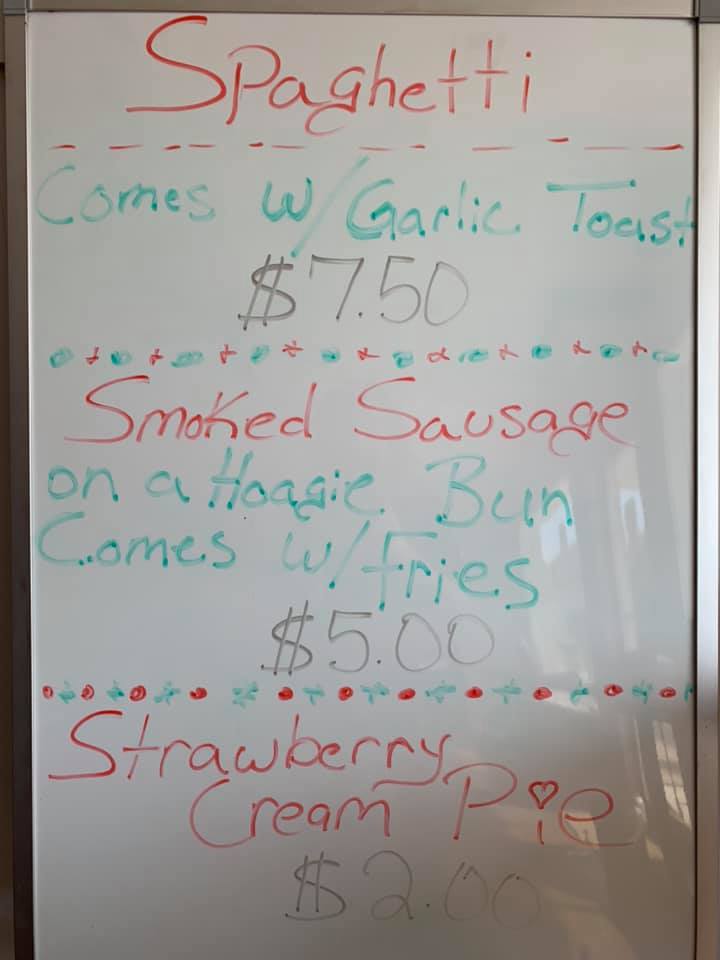 Spaghetti
Comes w/ Garlic Toast
$7.50
Smoked Sausage
on a Hoagie Bun
Comes w/ Fries
$5.00
Strawberry
Cream Pie
$2.00